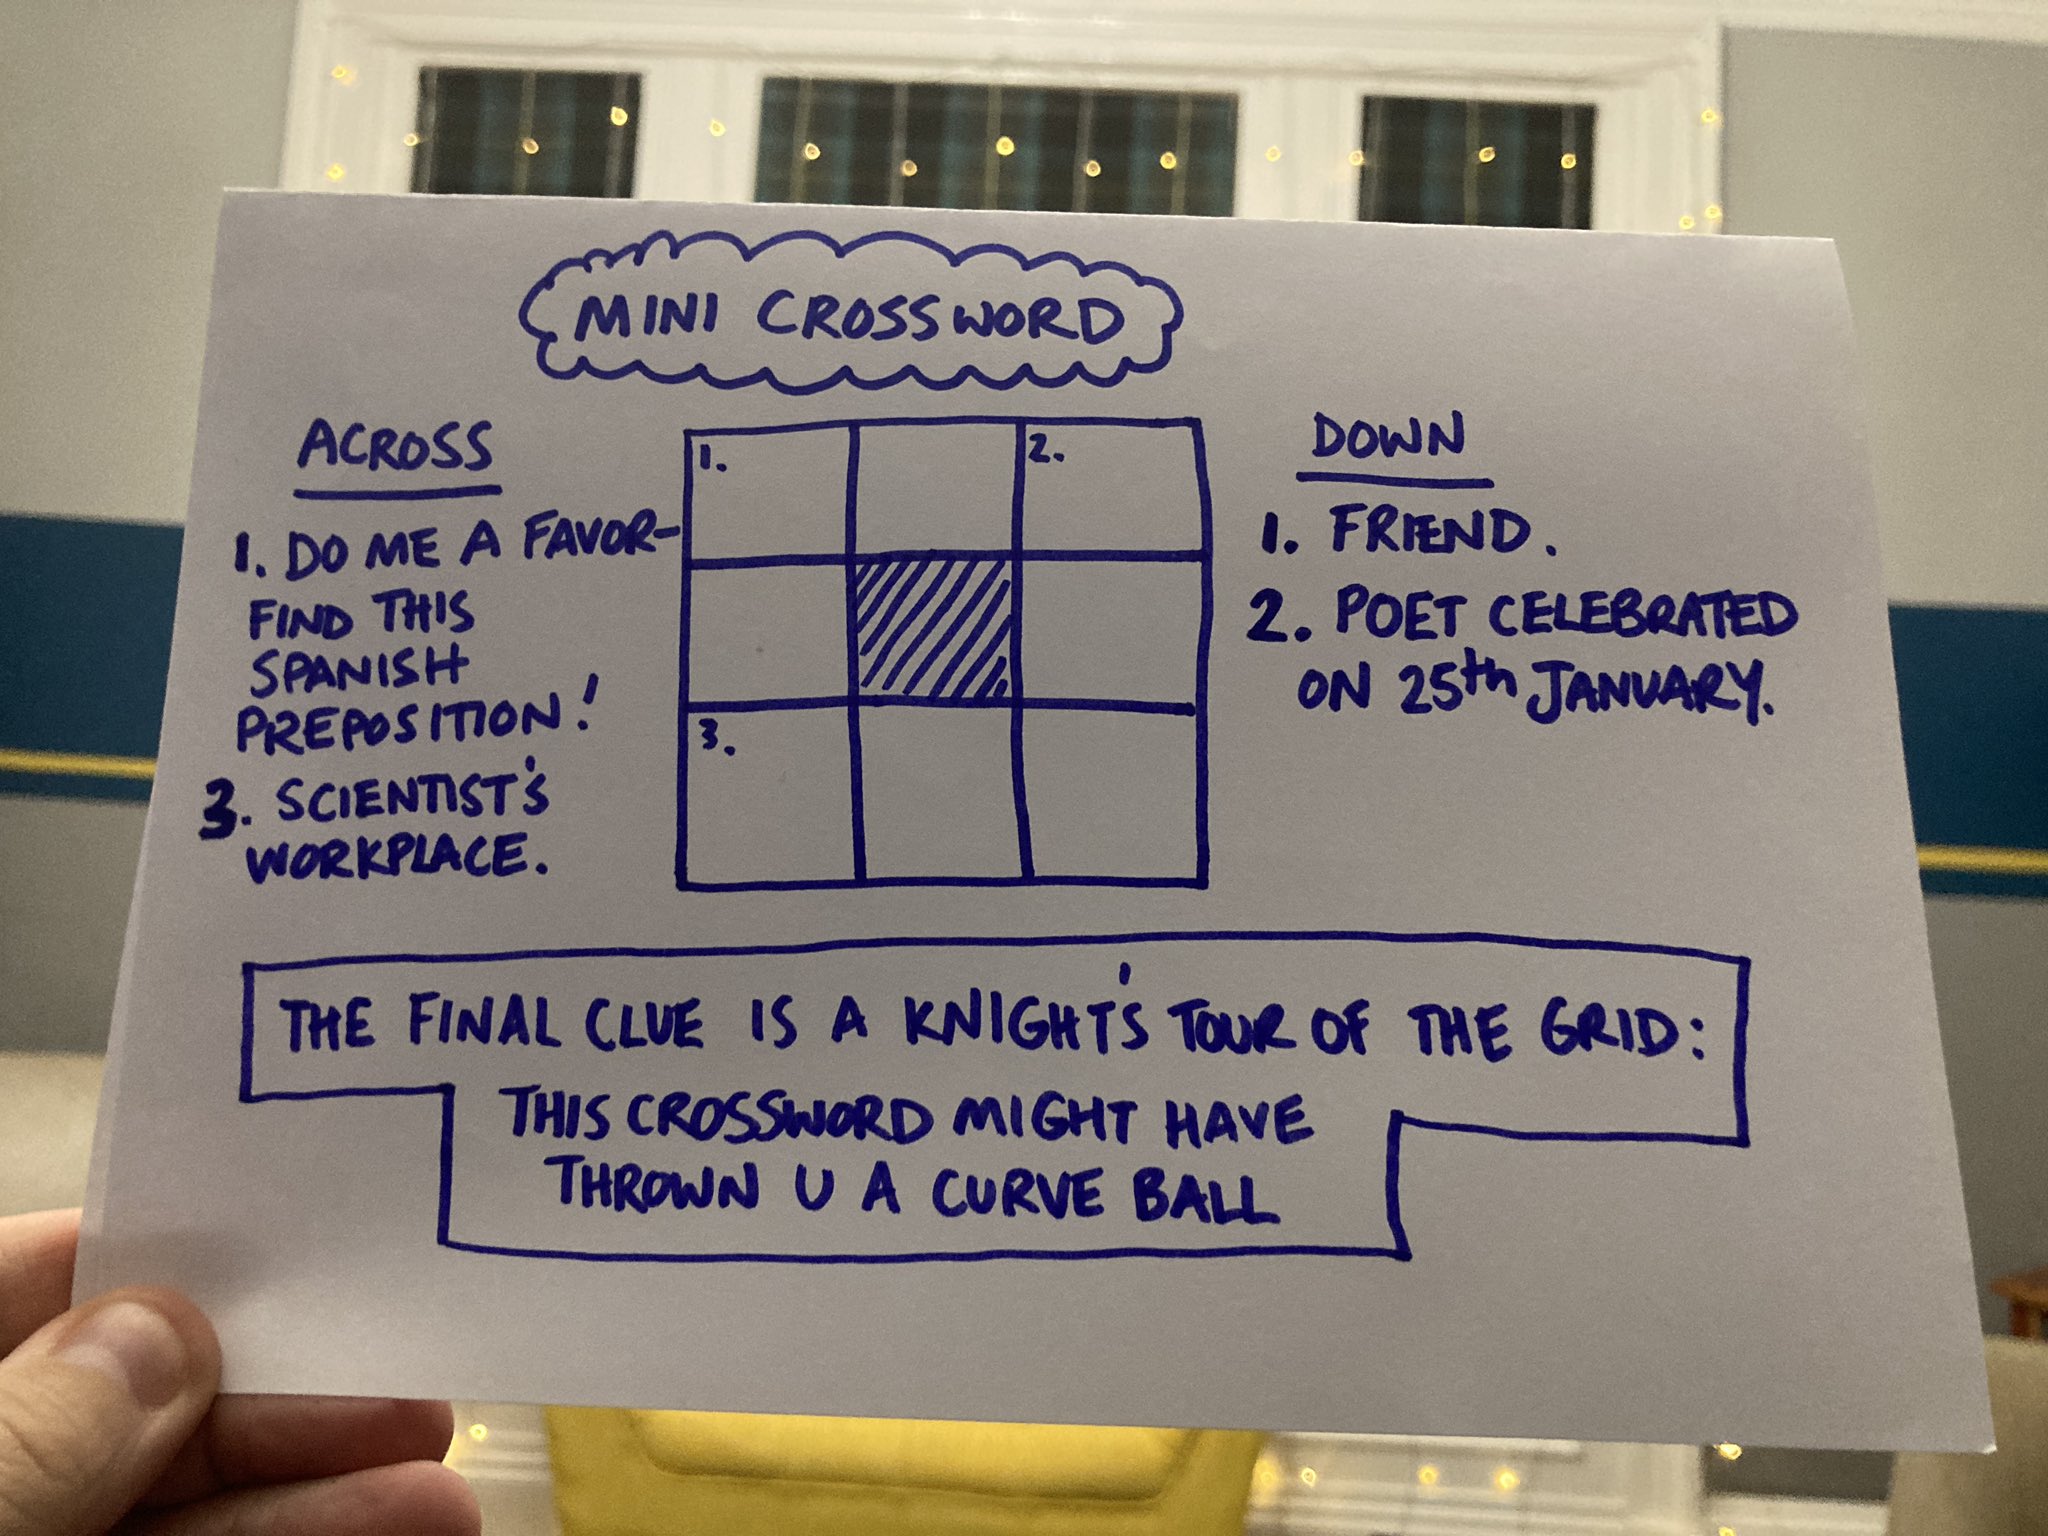 MINI CROSSWORD
ACROSS
1. DO ME A FAVOR-
FIND THIS
SPANISH
PREPOSITION!
3. SCIENTIST'S
WORKPLACE.
1.
2.
3.
DOWN
1. FRIEND.
2. POET CELEBRATED
ON 25th JANUARY.
THE FINAL CLUE IS A KNIGHT'S TOUR OF THE GRID:
THIS CROSSWORD MIGHT HAVE
THROWN U A CURVE BALL